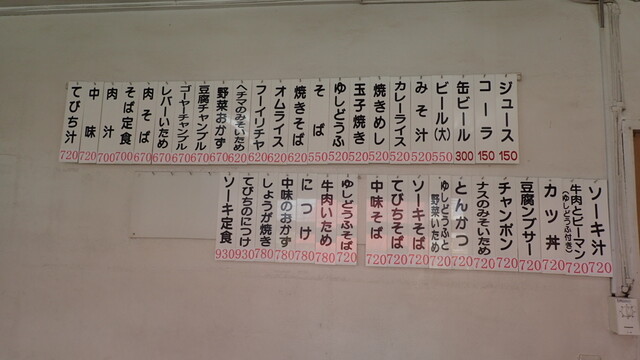 ジュース 150
コーラ 150
缶ビール 300
ビール(大) 550
みそ汁 520
カレーライス 520
焼きめし 520
玉子焼き 520
ゆしどうふ 520
そば 550
焼きそば 620
オムライス 620
フーイリチャ 620
ヘチマのみそいため 620
野菜おかず 670
豆腐チャンプル 670
ゴーヤーチャンプル 670
レバーいため 670
肉そば 670
そば定食 700
肉汁 700
中味 720
てびち汁 720
ソーキ汁 720
牛肉とピーマン
(ゆしどうふ付き) 720
カツ丼 720
豆腐ンブサー 720
チャンポン 720
ナスのみそいため 720
とんかつ 720
ゆしどうふと
野菜いため 720
ソーキそば 720
てびちそば 720
中味そば 720
ゆしどうふそば 720
牛肉いため 780
につけ 780
中味のおかず 780
しょうが焼き 780
てびちのにつけ 930
ソーキ定食 930